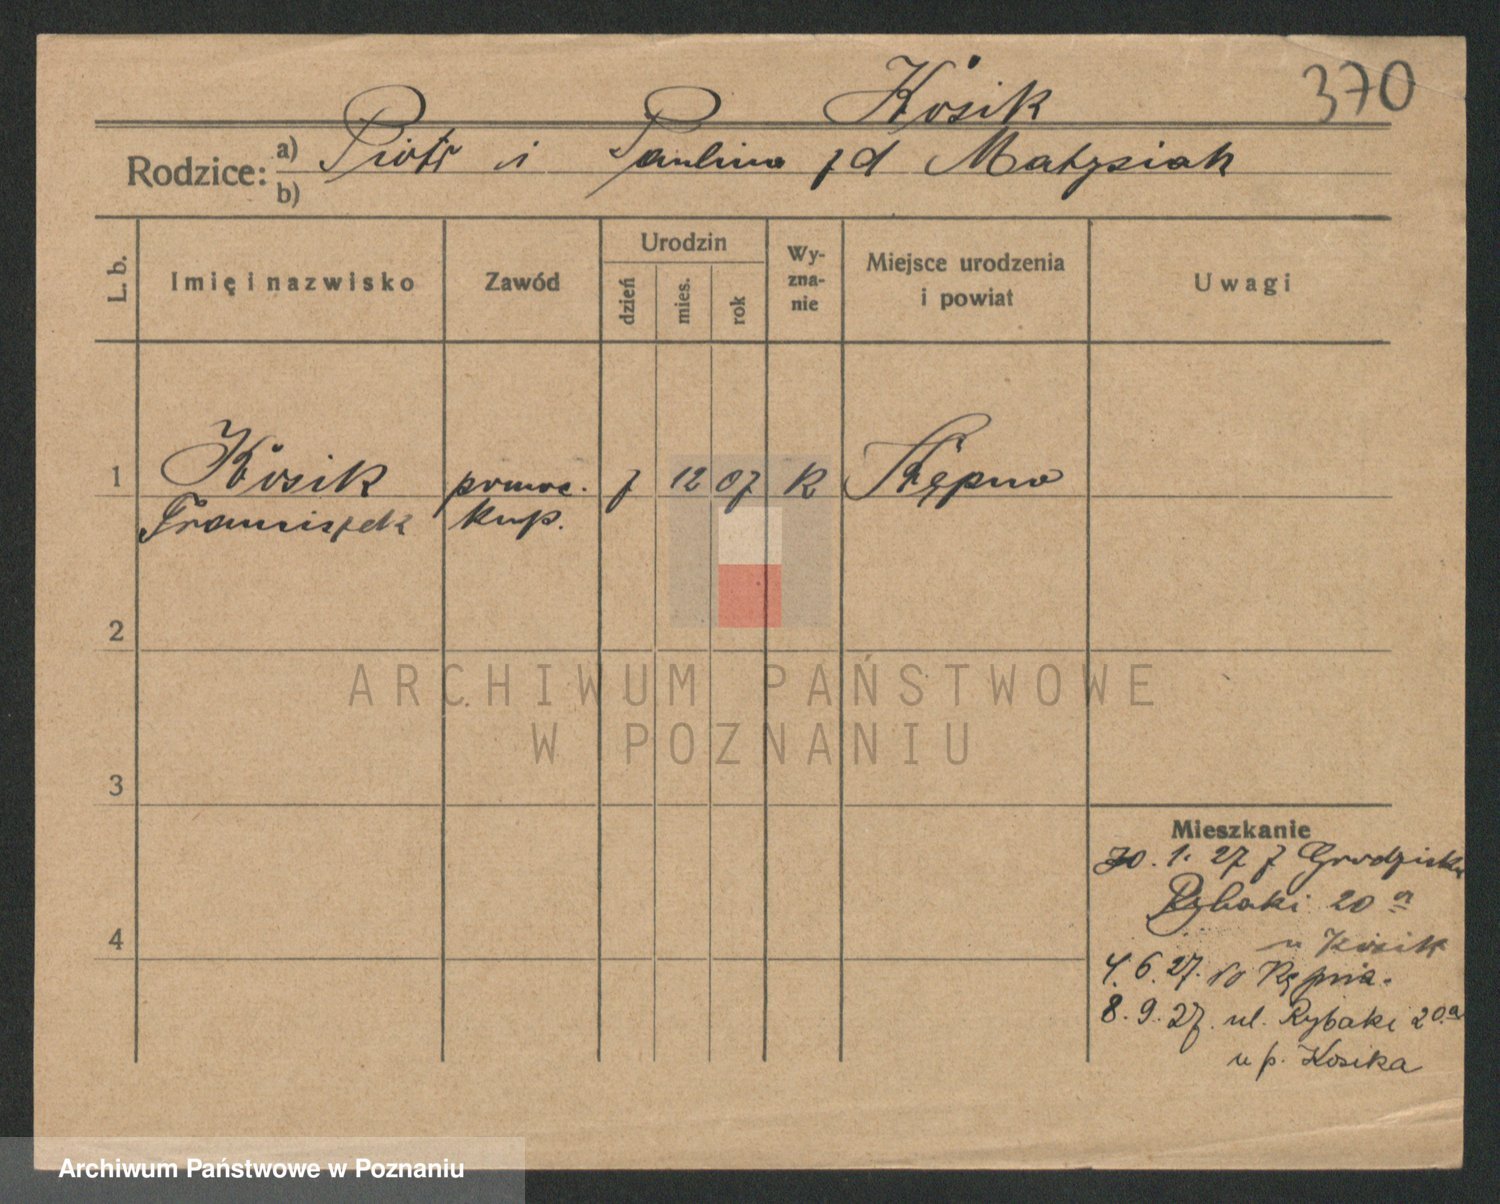 Kósik
370
Rodzice: a) Piotr i Paulina zd Matysiak
b)
L. b.
Imię i nazwisko
Zawód
Urodzin
dzień
mies.
rok
Wy-
zna-
nie
Miejsce urodzenia
i powiat
Uwagi
1
Kósik
Franciszek
pomoc.
kup.
7
12
07
R
Kępno
2
3
4
Mieszkanie
30. 1. 27 z Grodziska
Rybaki 20 a
u Kosik
4. 6. 27. do Kępna.
8. 9. 27. ul. Rybaki 20.a
u p. Kosika
ARCHIWUM PAŃSTWOWE
W POZNANIU
Archiwum Państwowe w Poznaniu